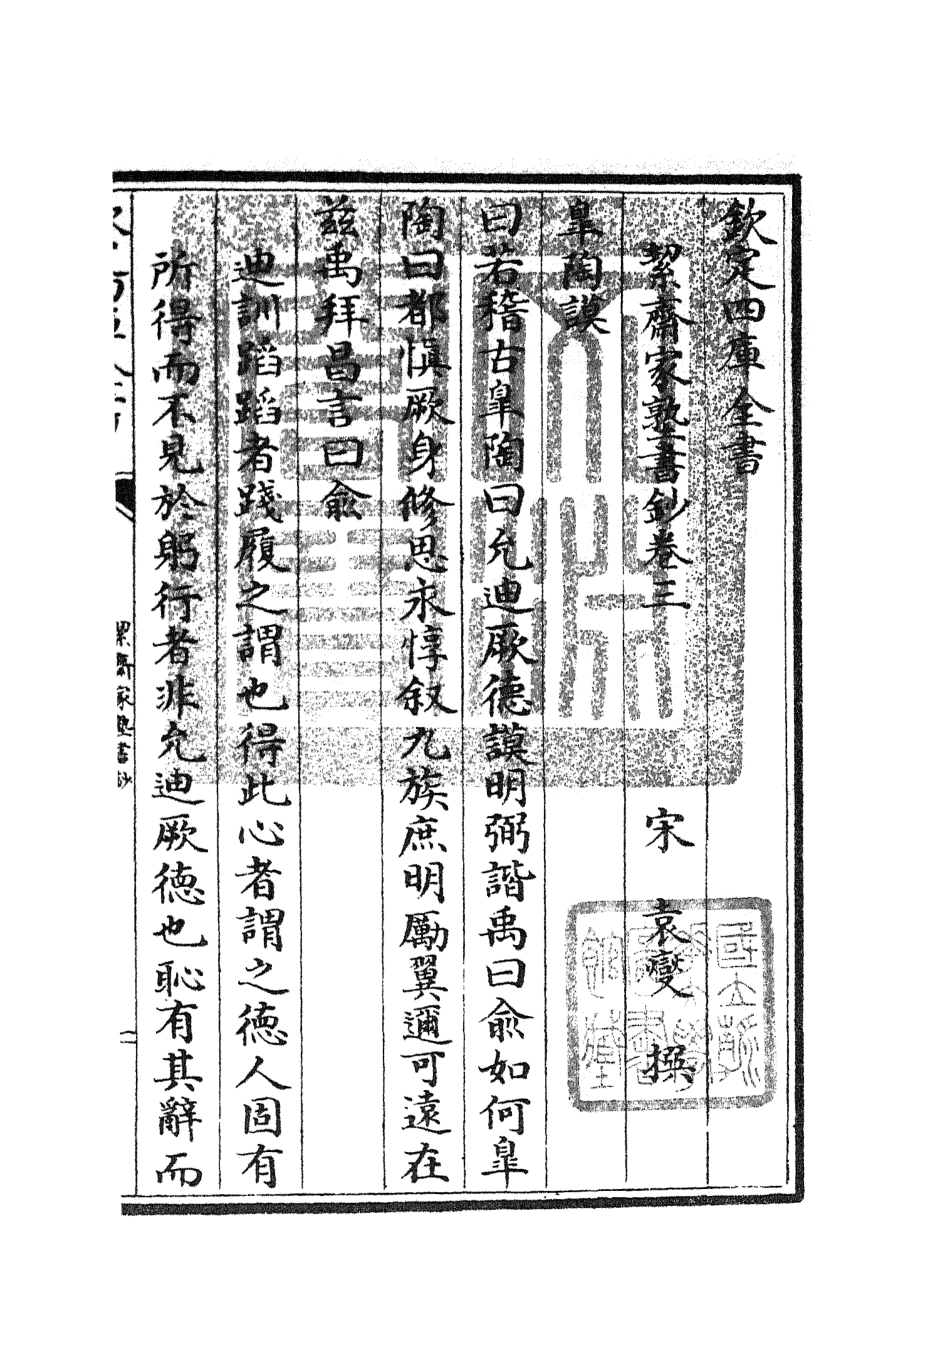 欽定四庫全書
絜齋家塾書鈔卷三 宋 袁燮 撰
皐陶謨
曰若稽古皐陶曰允迪厥徳謨明弼諧禹曰俞如何皐
陶曰都慎厥身修思永惇叙九族庶明勵翼邇可遠在
兹禹拜昌言曰俞
迪訓蹈蹈者踐履之謂也得此心者謂之徳人固有
所得而不見於躬行者非允迪厥徳也恥有其辭而
絜齋家塾書鈔